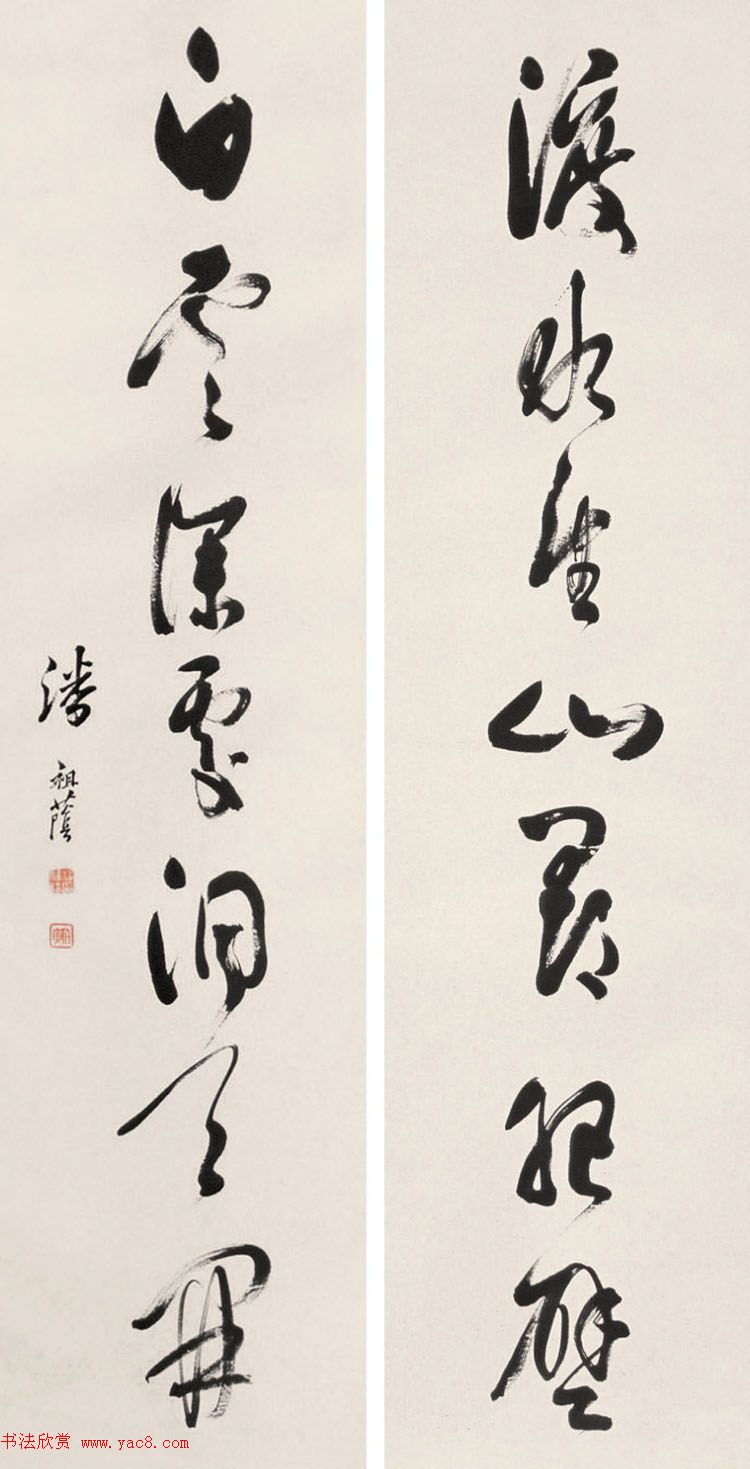 渡水登山尋絕壁
白雲深處洞天開
潘祖蔭
书法欣赏 www.yac8.com